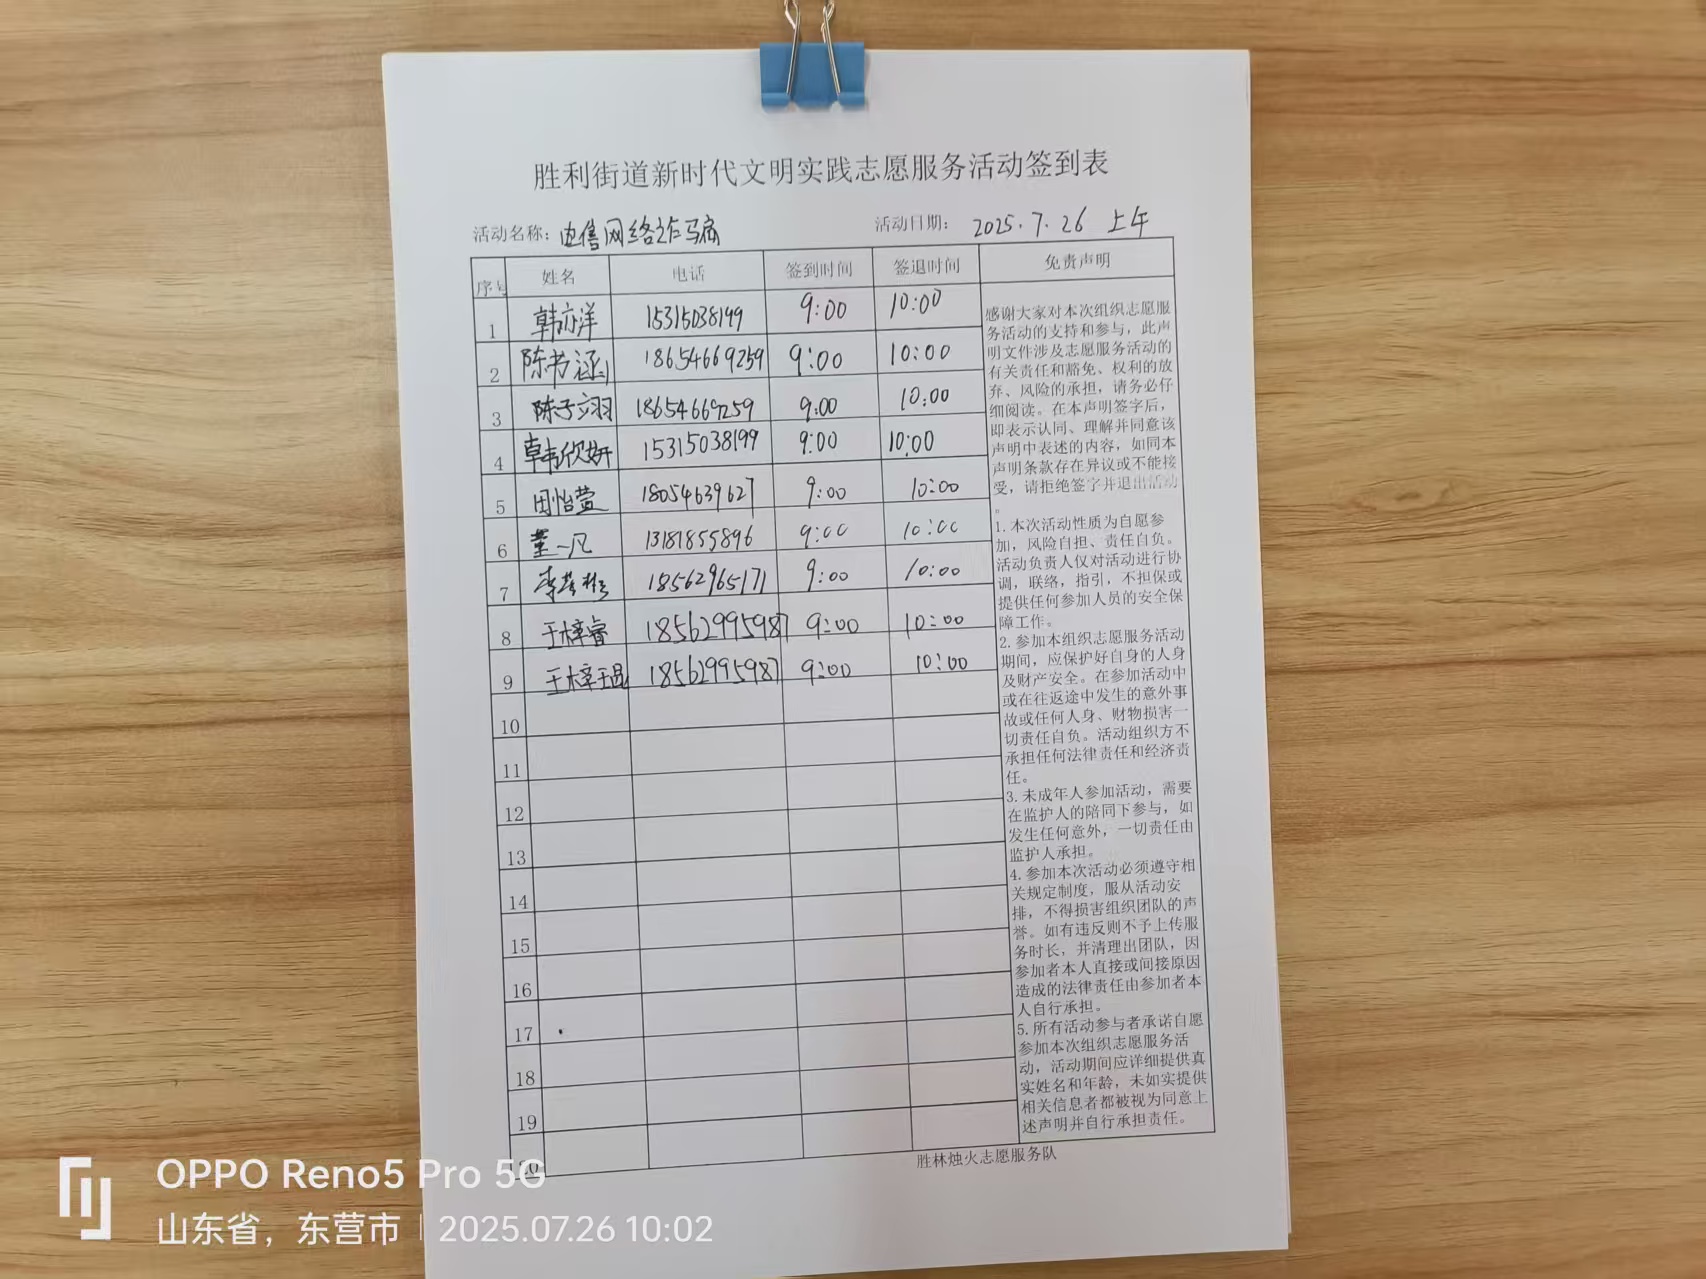 胜利街道新时代文明实践志愿服务活动签到表
活动名称：电信网络诈骗 活动日期： 2025.7.26 上午
序号 姓名 电话 签到时间 签退时间 免责声明
1 韩亦洋 15315038199 9:00 10:00
2 陈书涵 18654669259 9:00 10:00
3 陈子翊 18654669259 9:00 10:00
4 韩欣妍 15315038199 9:00 10:00
5 田怡萱 18054639627 9:00 10:00
6 董一凡 13181855896 9:00 10:00
7 李彦彬 18562965171 9:00 10:00
8 王梓睿 18562995987 9:00 10:00
9 王梓琨 18562995987 9:00 10:00
10
11
12
13
14
15
16
17
18
19
20
感谢大家对本次组织志愿服
务活动的支持和参与，此声
明文件涉及志愿服务活动的
有关责任和豁免、权利的放
弃、风险的承担，请务必仔
细阅读。在本声明签字后，
即表示认同、理解并同意该
声明中表述的内容，如同本
声明条款存在异议或不能接
受，请拒绝签字并退出活动
。
1.本次活动性质为自愿参
加，风险自担、责任自负。
活动负责人仅对活动进行协
调，联络，指引，不担保或
提供任何参加人员的安全保
障工作。
2.参加本组织志愿服务活动
期间，应保护好自身的人身
及财产安全。在参加活动中
或在往返途中发生的意外事
故或任何人身、财物损害一
切责任自负。活动组织方不
承担任何法律责任和经济责
任。
3.未成年人参加活动，需要
在监护人的陪同下参与，如
发生任何意外，一切责任由
监护人承担。
4.参加本次活动必须遵守相
关规定制度，服从活动安
排，不得损害组织团队的声
誉。如有违反则不予上传服
务时长，并清理出团队，因
参加者本人直接或间接原因
造成的法律责任由参加者本
人自行承担。
5.所有活动参与者承诺自愿
参加本次组织志愿服务活
动，活动期间应详细提供真
实姓名和年龄，未如实提供
相关信息者都被视为同意上
述声明并自行承担责任。
胜林烛火志愿服务队
OPPO Reno5 Pro 5G
山东省，东营市 | 2025.07.26 10:02